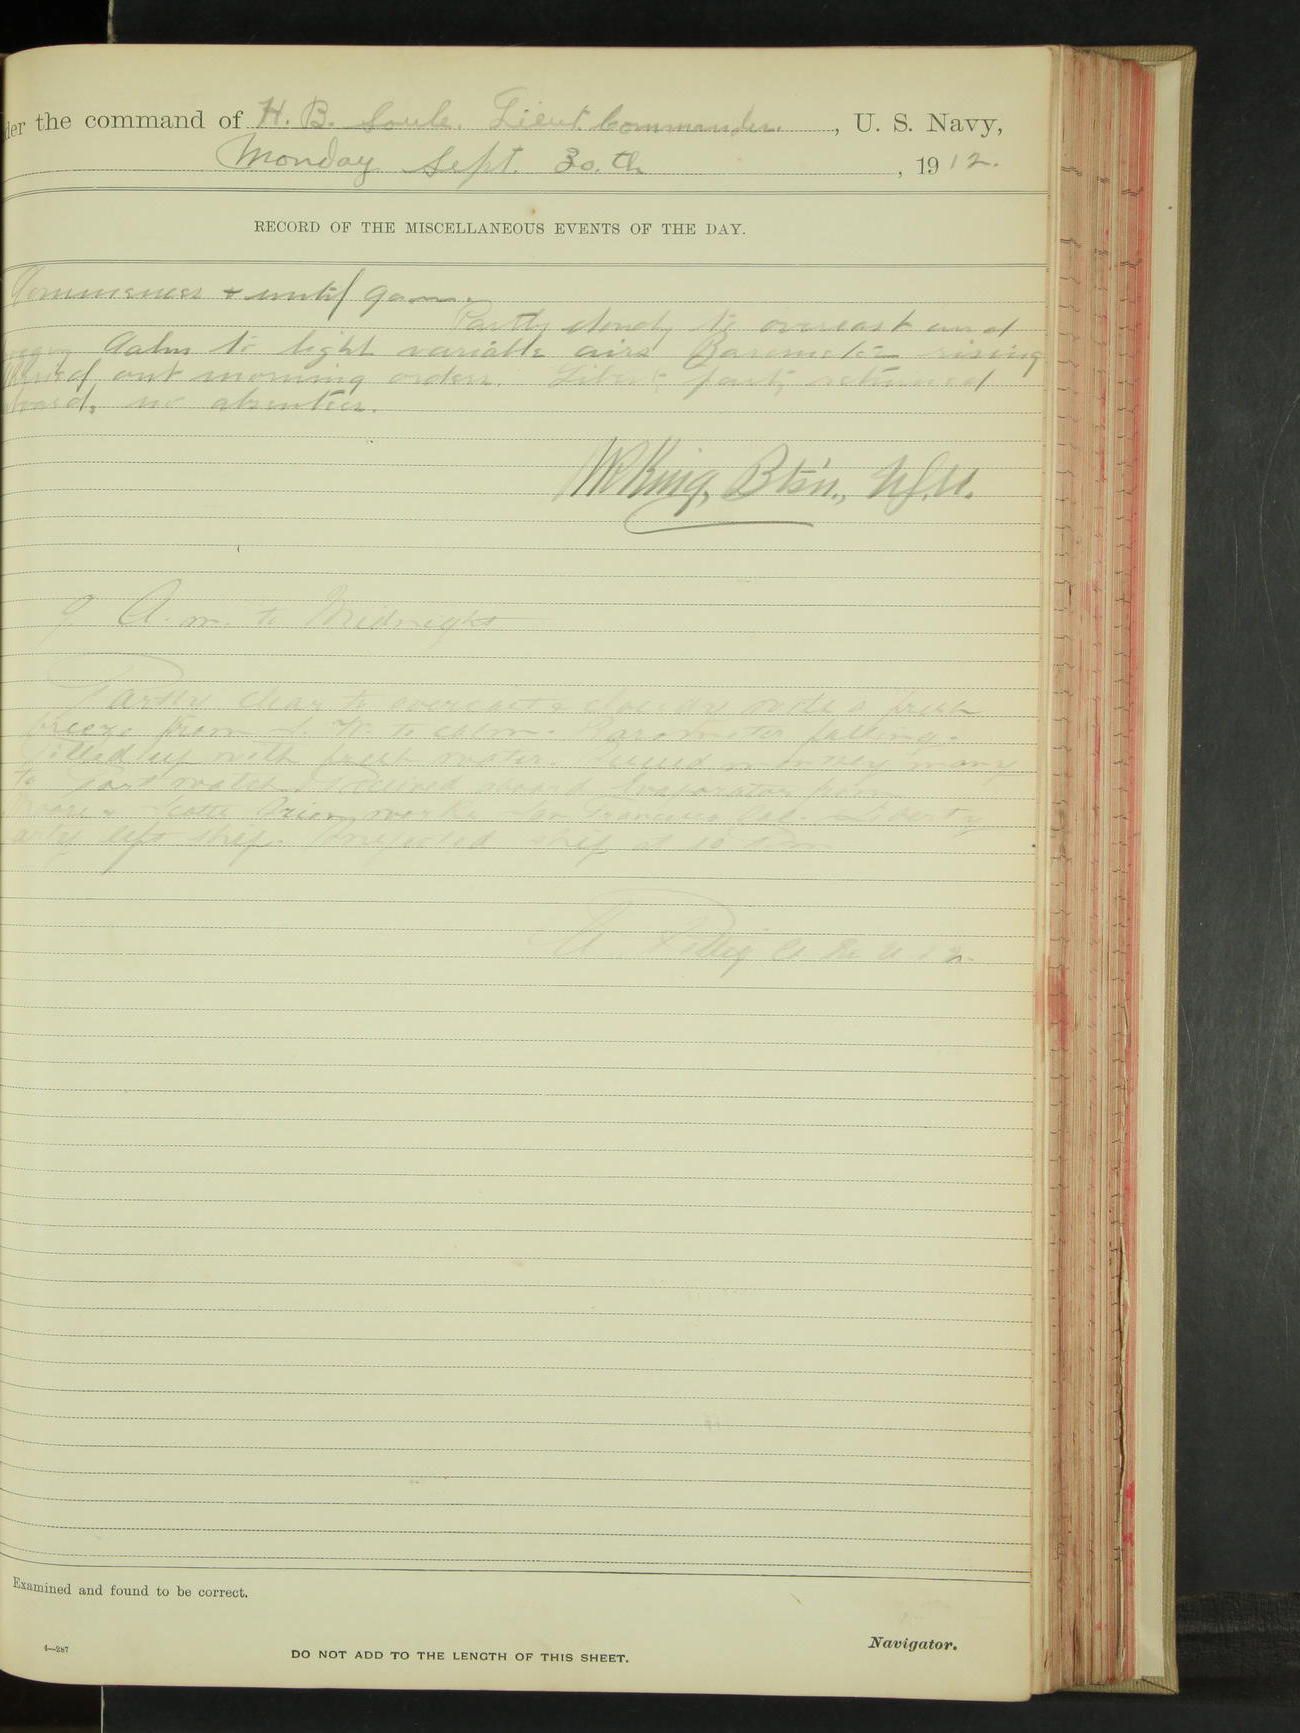 der the command of H. B. Soule. Lieut. Commander. , U. S. Navy,
Monday Sept. 30.th , 1912.
RECORD OF THE MISCELLANEOUS EVENTS OF THE DAY.
Commences & until 9 a.m.
Partly cloudy to overcast and
Calm to light variable airs Barometer rising
out morning orders. Liberty party returned
aboard, no absentees.
King, Btsn., U.S.N.
9 A.m. to Midnight
Partly clear to overcast & cloudy with a fresh
breeze from S. W. to calm. Barometer falling.
Filled up with fresh water. Issued monthly money
to Port watch. Received aboard Evaporator from
Moore & Scotts Iron works San Francisco Cal. Liberty
party left ship. Inspected ship at 10
U.S.N.
Examined and found to be correct.
Navigator.
4—287
DO NOT ADD TO THE LENGTH OF THIS SHEET.